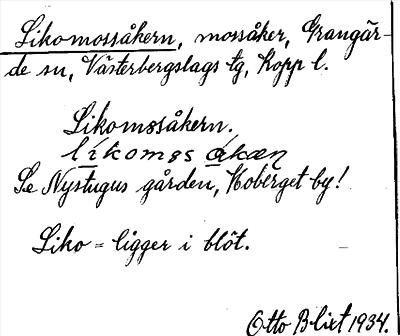 Likomossåkern, mossåker, Grangär-
de sn, Västerbergslags tg, Kopp l.
Likomossåkern.
líkomøs åkæn
Se Nystugus gården, Hoberget by!
Liko = ligger i blöt.
Otto Blixt 1934.